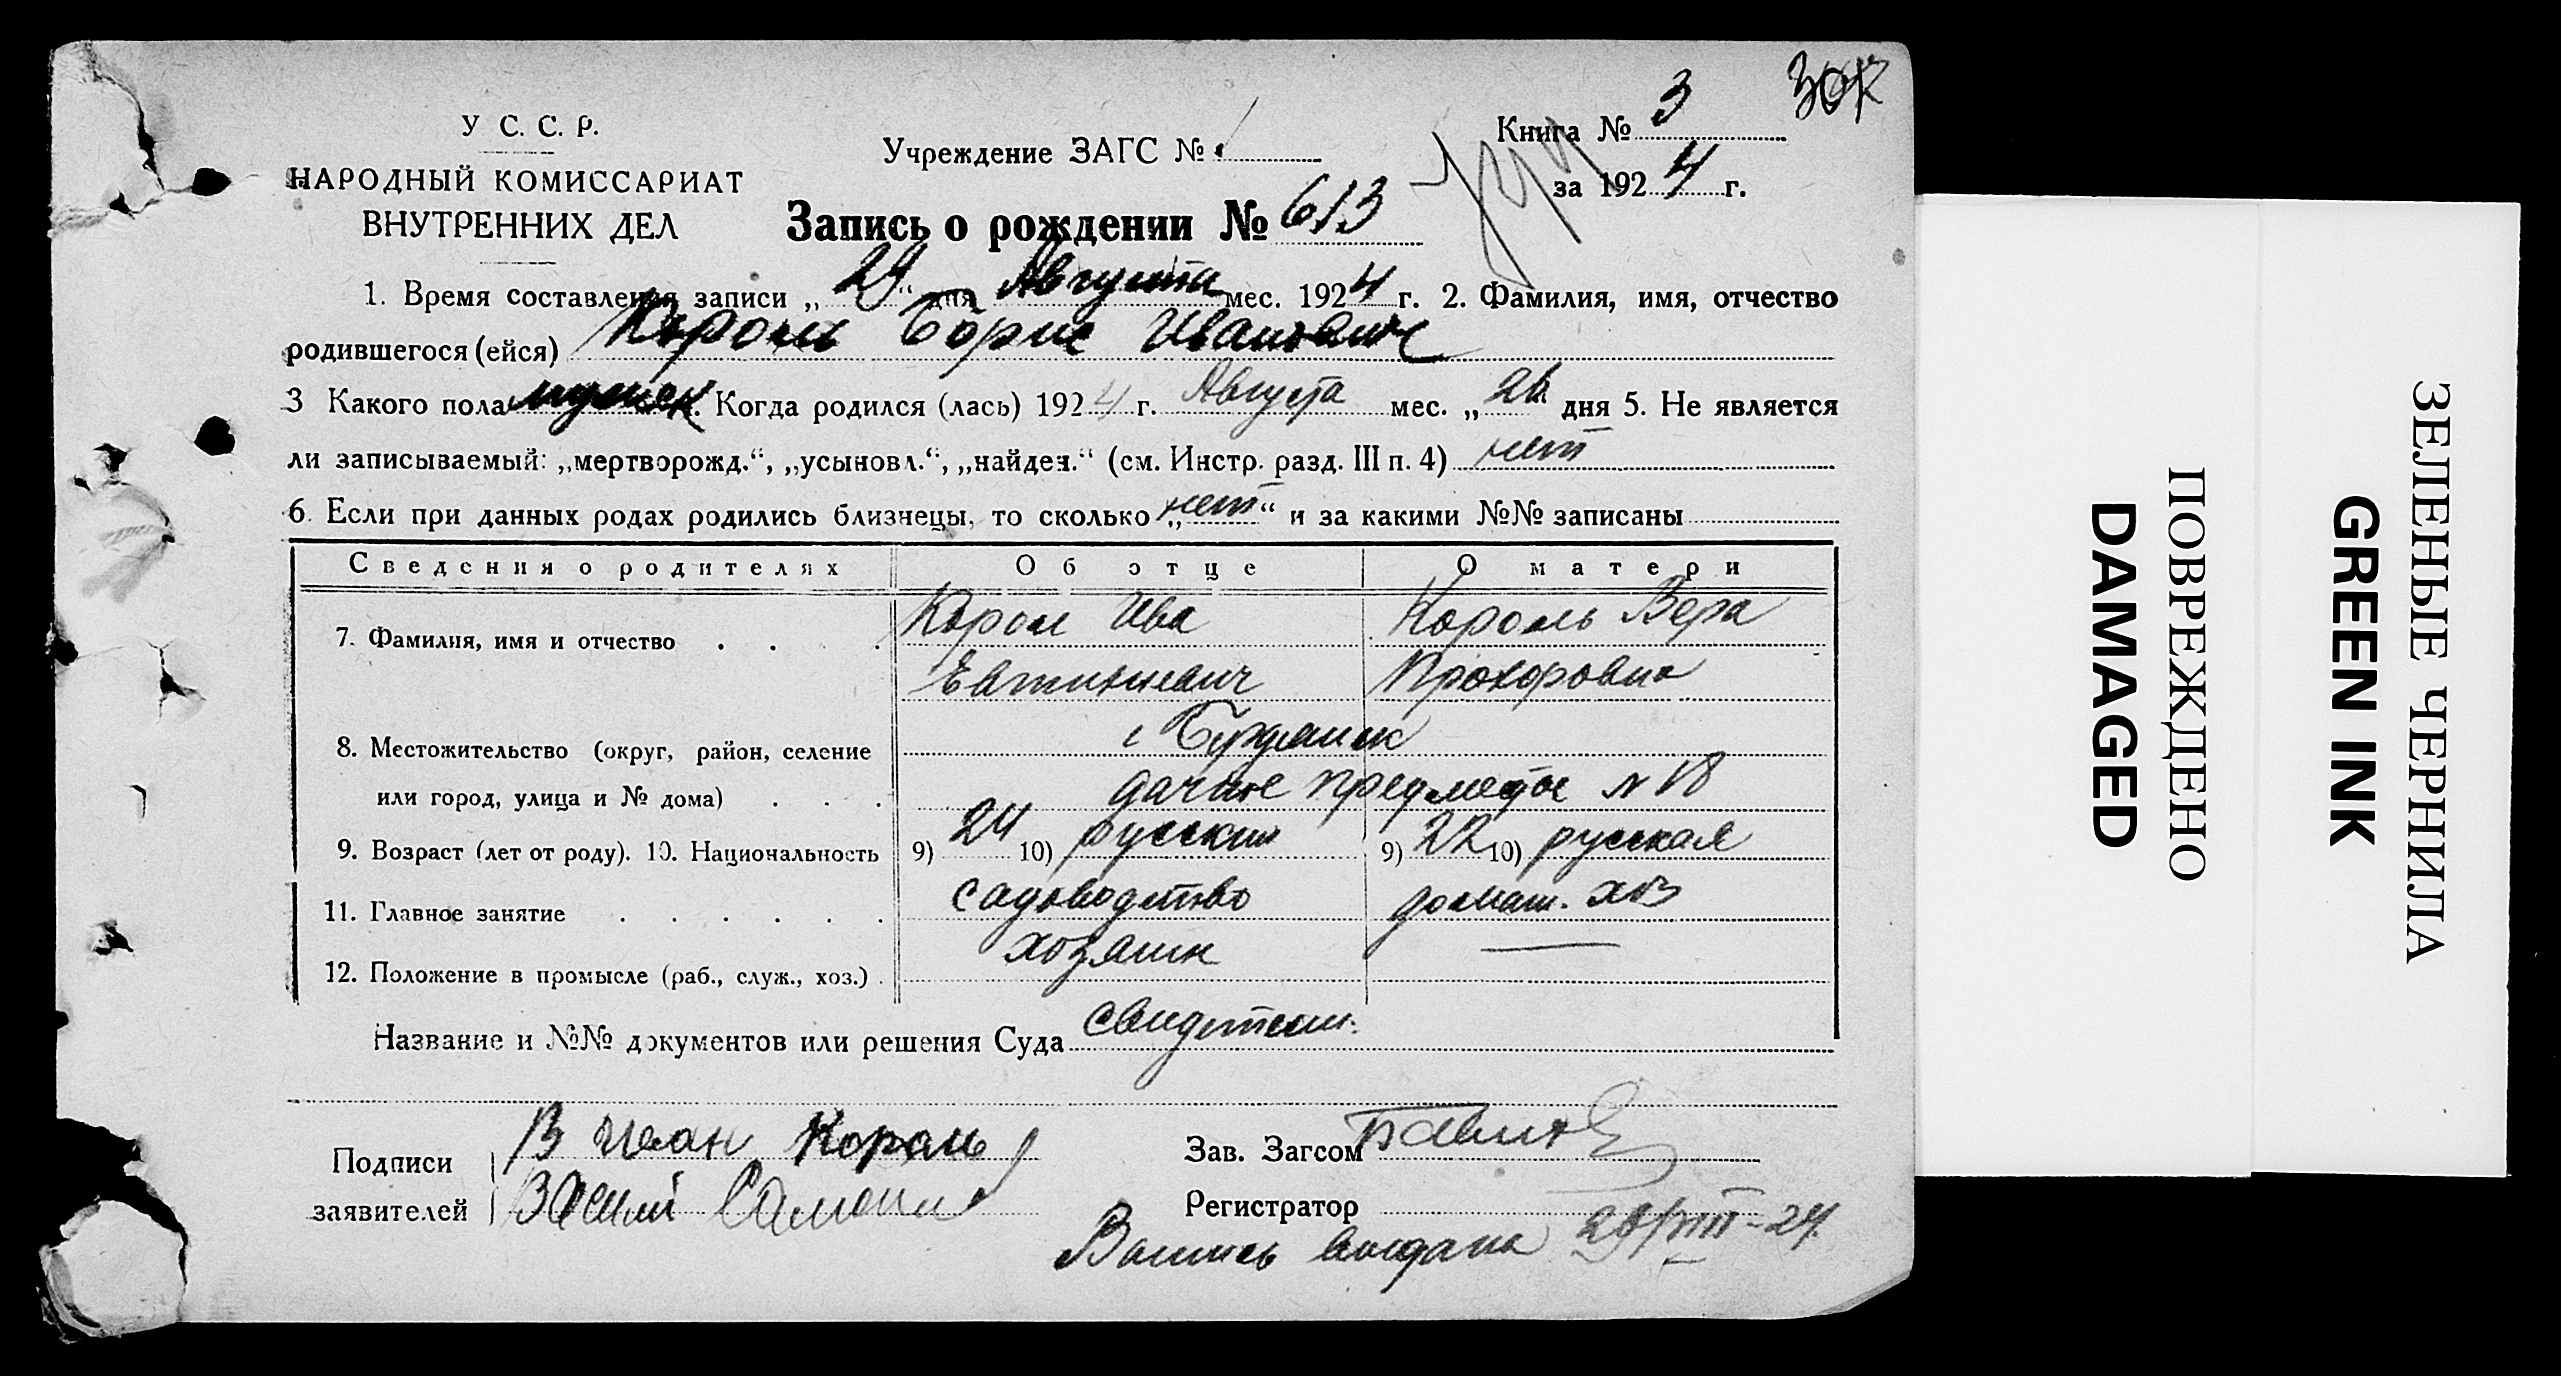 У С. С. Р.
НАРОДНЫЙ КОМИССАРИАТ
ВНУТРЕННИХ ДЕЛ
Учреждение ЗАГС №
Книга № 3
за 1924 г.
Запись о рождении № 613
1. Время составления записи „29“ дня Августа мес. 1924 г. 2. Фамилия, имя, отчество
родившегося (ейся) Король Борис Иванович
3 Какого пола мужск. Когда родился (лась) 1924 г. Августа мес. „ дня 5. Не является
ли записываемый: „мертворожд.“, „усыновл.“, „найден.“ (см. Инстр. разд. III п. 4) нет
6. Если при данных родах родились близнецы, то сколько „нет“ и за какими №№ записаны
Сведения о родителях Об отце О матери
7. Фамилия, имя и отчество Король Ива Король Вера
Прохоровна
8. Местожительство (округ, район, селение
или город, улица и № дома) дачные предместье N 18
9. Возраст (лет от роду). 10. Национальность 9) 24 10) русский 9) 22 10) русская
11. Главное занятие садоводство домаш. хоз
12. Положение в промысле (раб., служ., хоз.) хозяин —
Название и №№ документов или решения Суда свидетели.
Подписи
заявителей
Иван Король
Зав. Загсом
Регистратор
Выпись выдана 29/VIII-24.
ЗЕЛЕНЫЕ ЧЕРНИЛА
GREEN INK
ПОВРЕЖДЕНО
DAMAGED